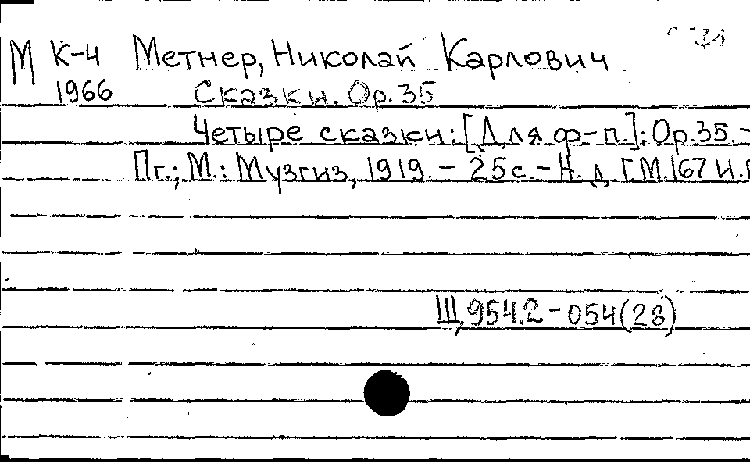 М К-4 Метнер, Николай Карлович
1966 Сказки. Ор.35
Четыре сказки: [Для ф-п.]: Ор.35.-
Пг.; М.: Музгиз, 1919. - 25с. - Н. д. Г.М.167 И.
Щ954.2-054(28)